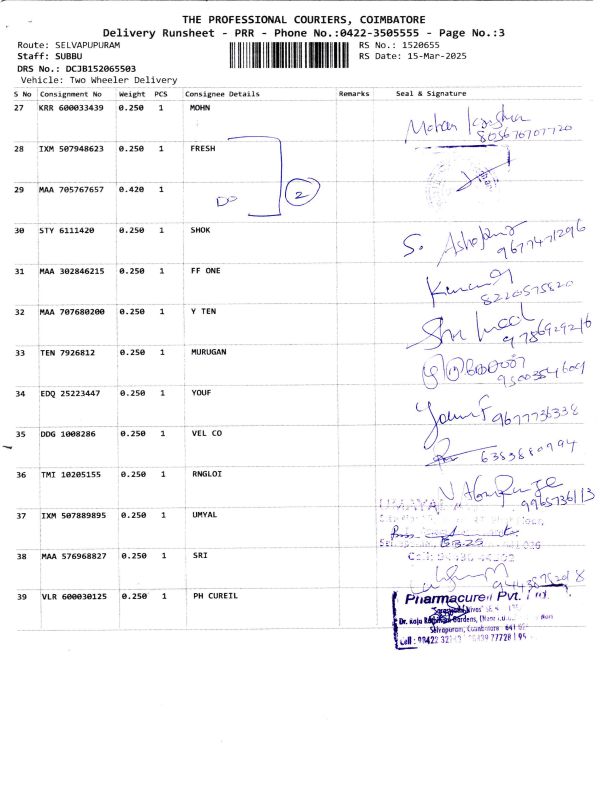 THE PROFESSIONAL COURIERS, COIMBATORE
Delivery Runsheet - PRR - Phone No.:0422-3505555 - Page No.:3
Route: SELVAPUPURAM RS No.: 1520655
Staff: SUBBU RS Date: 15-Mar-2025
DRS No.: DCJB152065503
Vehicle: Two Wheeler Delivery
S No Consignment No Weight PCS Consignee Details Remarks Seal & Signature
27 KRR 600033439 0.250 1 MOHN
Mohan
8056707720
28 IXM 507948623 0.250 1 FRESH
29 MAA 705767657 0.420 1
Do 2
30 STY 6111420 0.250 1 SHOK
S. Ashokumar
9677471296
31 MAA 302846215 0.250 1 FF ONE
8220575820
32 MAA 707680200 0.250 1 Y TEN
9786929216
33 TEN 7926812 0.250 1 MURUGAN
9500354609
34 EDQ 25223447 0.250 1 YOUF
9677736338
35 DDG 1008286 0.250 1 VEL CO
6383880994
36 TMI 10205155 0.250 1 RNGLOI
9965736113
37 IXM 507889895 0.250 1 UMYAL
UMAYAL
38 MAA 576968827 0.250 1 SRI
9443875218
39 VLR 600030125 0.250 1 PH CUREIL
Pharmacureil Pvt.
Dr. Raja Gardens,
Selvapuram, Coimbatore 641
Cell : 98422